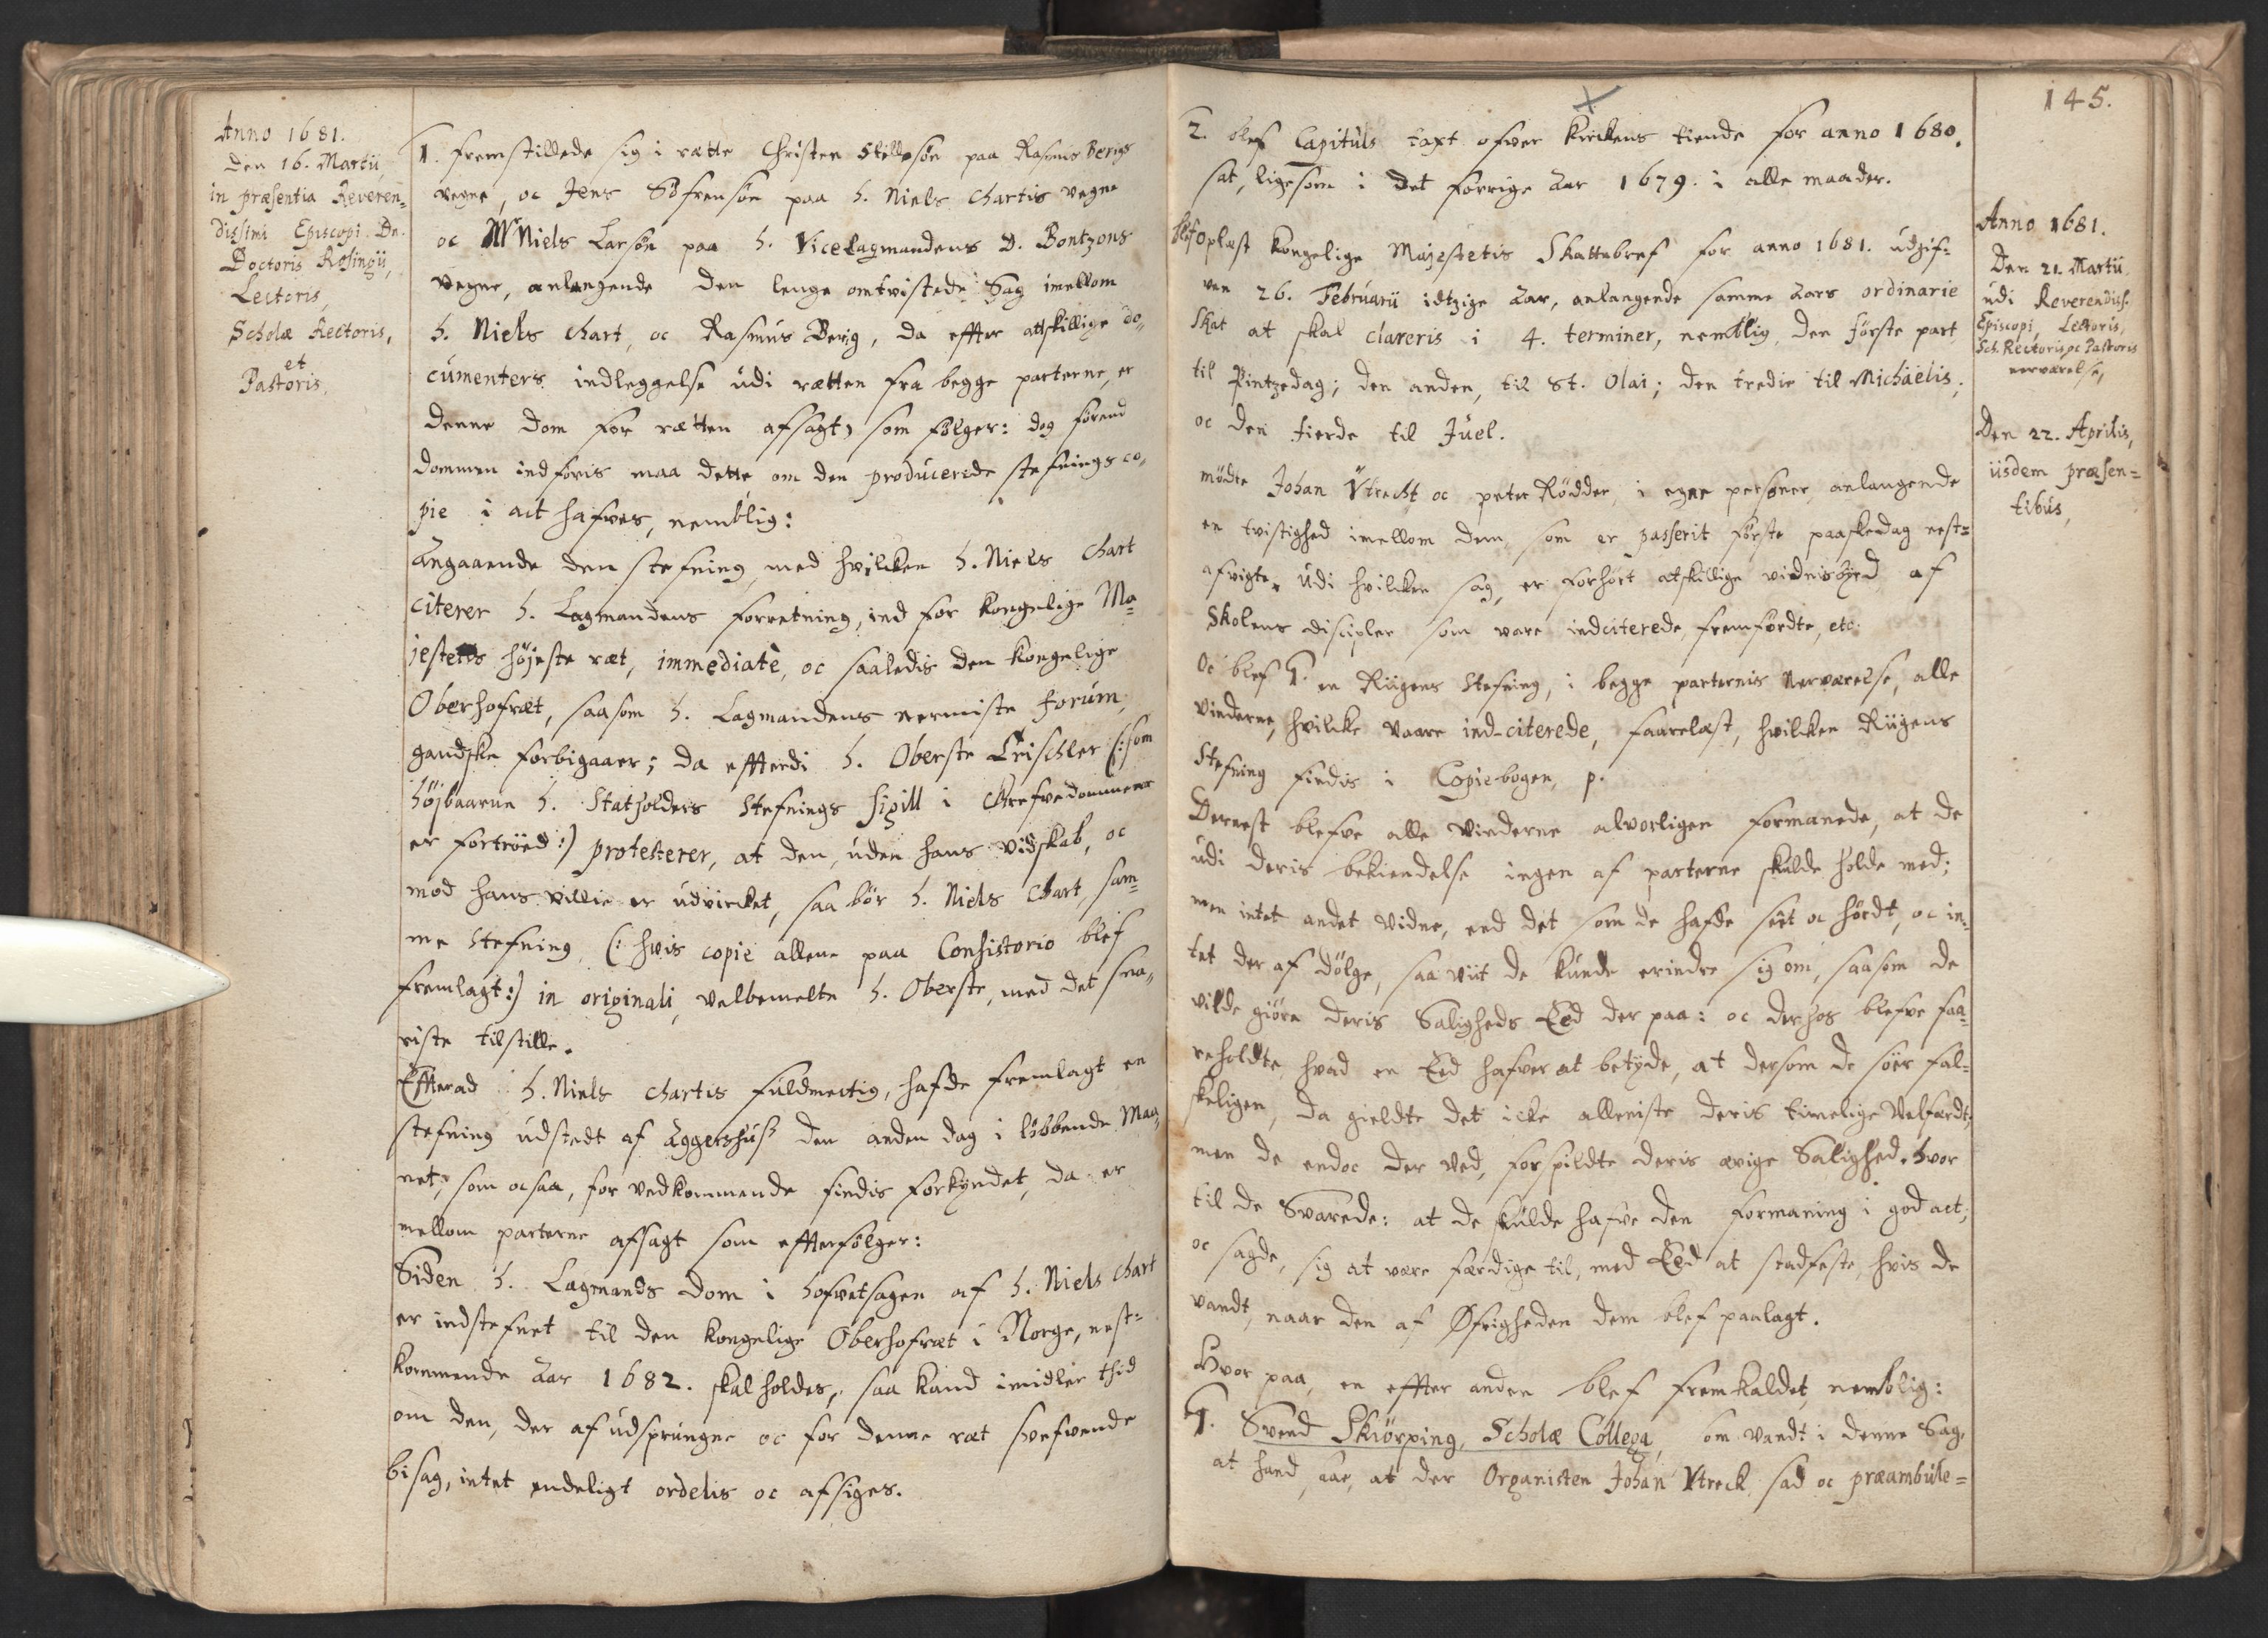 Anno 1681.
Den 16. Martii
in præsentia Reveren=
dissimi Episcopi Dn.
Doctoris Rosingii,
Lectoris,
Scholæ Rectoris,
et
Pastoris,
1. fremstillede sig i rætte Christen Stellesøn paa Rasmus Berigs
vegne, oc Jens Söfrensøn paa h. Niels Chartis vegne
oc Mr Niels Larsøn paa h. Vicelagmandens D. Bontzons
vegne, anlangende den lenge omtvistede Sag imellom
h. Niels Chart, oc Rasmus Berig, da effter atskillige do=
cumenters indleggelse udi rætten fra begge parterne, er
denne dom for rætten afsagt, som følger: dog førend
dommen indføris maa dette om den producerede stefnings co=
pie i act hafves, nemblig:
Angaaende den stefning, med hvilcken h. Niels Chart
citerer h. Lagmandens forretning, ind for kongelige Ma=
jestetts höjeste ræt, immediatè, oc saaledis den kongelige
Oberhofræt, saasom h. Lagmandens nermiste forum,
gandske forbigaaer; da effterdi h. Oberste Crischler (: som
höjbaarne h. Statholders Stefnings Sigill i Grefvedommene
er fortröed :) protesterer, at den, uden hans vidskab, oc
mod hans villie er udvircket, saa bör h. Niels Chart, sam=
me Stefning (: hvis copie allene paa Consistorio blef
fremlagt :) in originali, velbemelte h. Oberste, med det sna=
riste tilstille.
Effterad h. Niels Chartis fuldmectig, hafde fremlagt en
stefning udstedt af Aggershuß den anden dag i löbbende Maa=
net, som ocsaa, for vedkommende findis forkyndet, da er
mellom parterne afsagt som effterfölger:
Siden h. Lagmands dom i hofvetsagen af h. Niels Chart
er indstefnet til den kongelige Oberhofræt i Norge, nest=
kommende Aar 1682. skal holdes, saa kand imidler thid
om den, der af udsprungne oc for denne ræt svefvende
bisag, intet endeligt ordelis oc afsiges.
145.
2. blef Capituls taxt ofver Kirckens tiende for anno 1680.
sat, ligesom i det forrige Aar 1679. i alle maader.
Anno 1681.
Den 21. Martii
udi Reverendiss.
Episcopi, Lectoris,
Sch. Rectoris oc Pastoris
nerværelse,
blef oplæst kongelige Majestetis Skattebref for anno 1681. udgif=
ven 26. Februarii idtzige Aar, anlangende samme Aars ordinarie
Skat at skal clareris i 4. terminer, nemblig, den förste part
til Pintzedag; den anden, til St. Olai; den tredie til Michaëlis,
oc den fierde til Juel.
Den 22. Aprilis,
iisdem præsen=
tibus,
mödte Johan Vtrecht oc peter Rödder, i egne personer, anlangende
en tvistighed imellom dem, som er passerit förste paaskedag nest=
afvigte, udi hvilcken sag, er forhört atskillige vidnisbyrd af
Skolens discipler som vare indciterede, fremfördte, etc.
Oc blef 1. en Riigens Stefning, i begge parternis Nerværelse, alle
vinderne, hvilcke vaare ind-citerede, faarelæst, hvilcken Riigens
Stefning findis i Copiebogen, p.
Dernest blefve alle Vinderne alvorligen formanede, at de
udi deris bekiendelse ingen af parterne skulde holde med;
men intet andet vidne, end det som de hafde seet oc hördt, oc in=
tet der af dölge, saa viit de kunde erindre sig om, saasom de
vilde giöre deris Saligheds Eed der paa: oc derhos blefve faa=
reholdte, hvad en Eed hafver at betyde, at dersom de soer fal=
skeligen, da gieldte det icke alleniste deris timelige Velfærdt,
men de endoc der ved, forspildte deris ævige Salighed. hvor
til de Svarede: at de skulde hafve den formaning i god act,
oc sagde, sig at være færdige til, med Eed at stadfeste, hvis de
vandt, naar den af Öfrigheden dem blef paalagt.
Hvor paa, en effter anden blef fremkaldet, nemblig:
1. Svend Skiörping, Scholæ Collega, om vandt i denne Sag,
at hand, saae, at der Organisten Johan Vtreck, sad oc præambule=